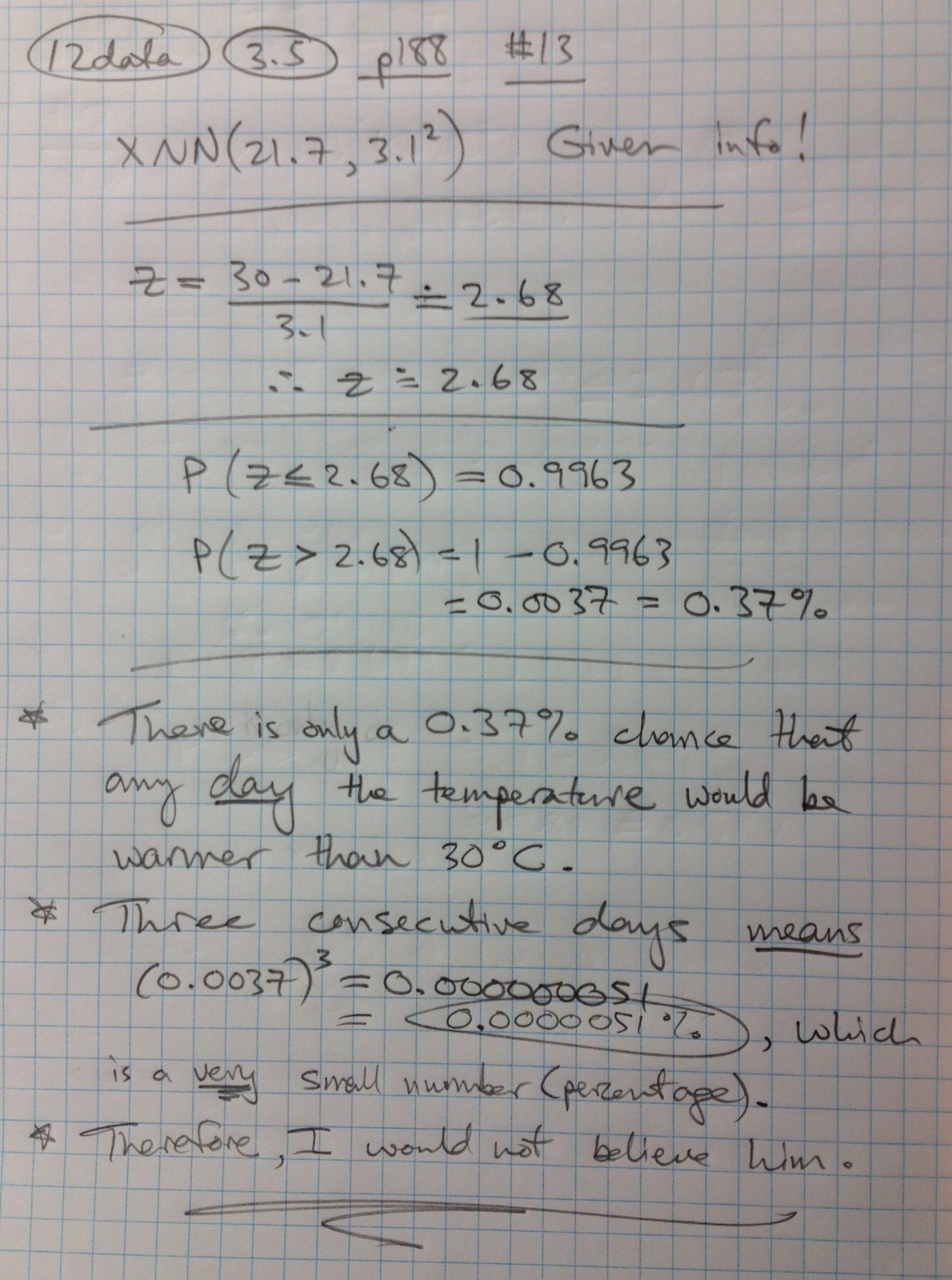 12data 3.5 p188 #13
X~N(21.7, 3.1²) Given info!
z = 30 - 21.7 ≐ 2.68
3.1
∴ z ≐ 2.68
P(z ≤ 2.68) = 0.9963
P(z > 2.68) = 1 - 0.9963
= 0.0037 = 0.37%
* There is only a 0.37% chance that
any day the temperature would be
warmer than 30°C.
* Three consecutive days means
(0.0037)³ = 0.000000051
= 0.0000051 %, which
is a very small number (percentage).
* Therefore, I would not believe him.